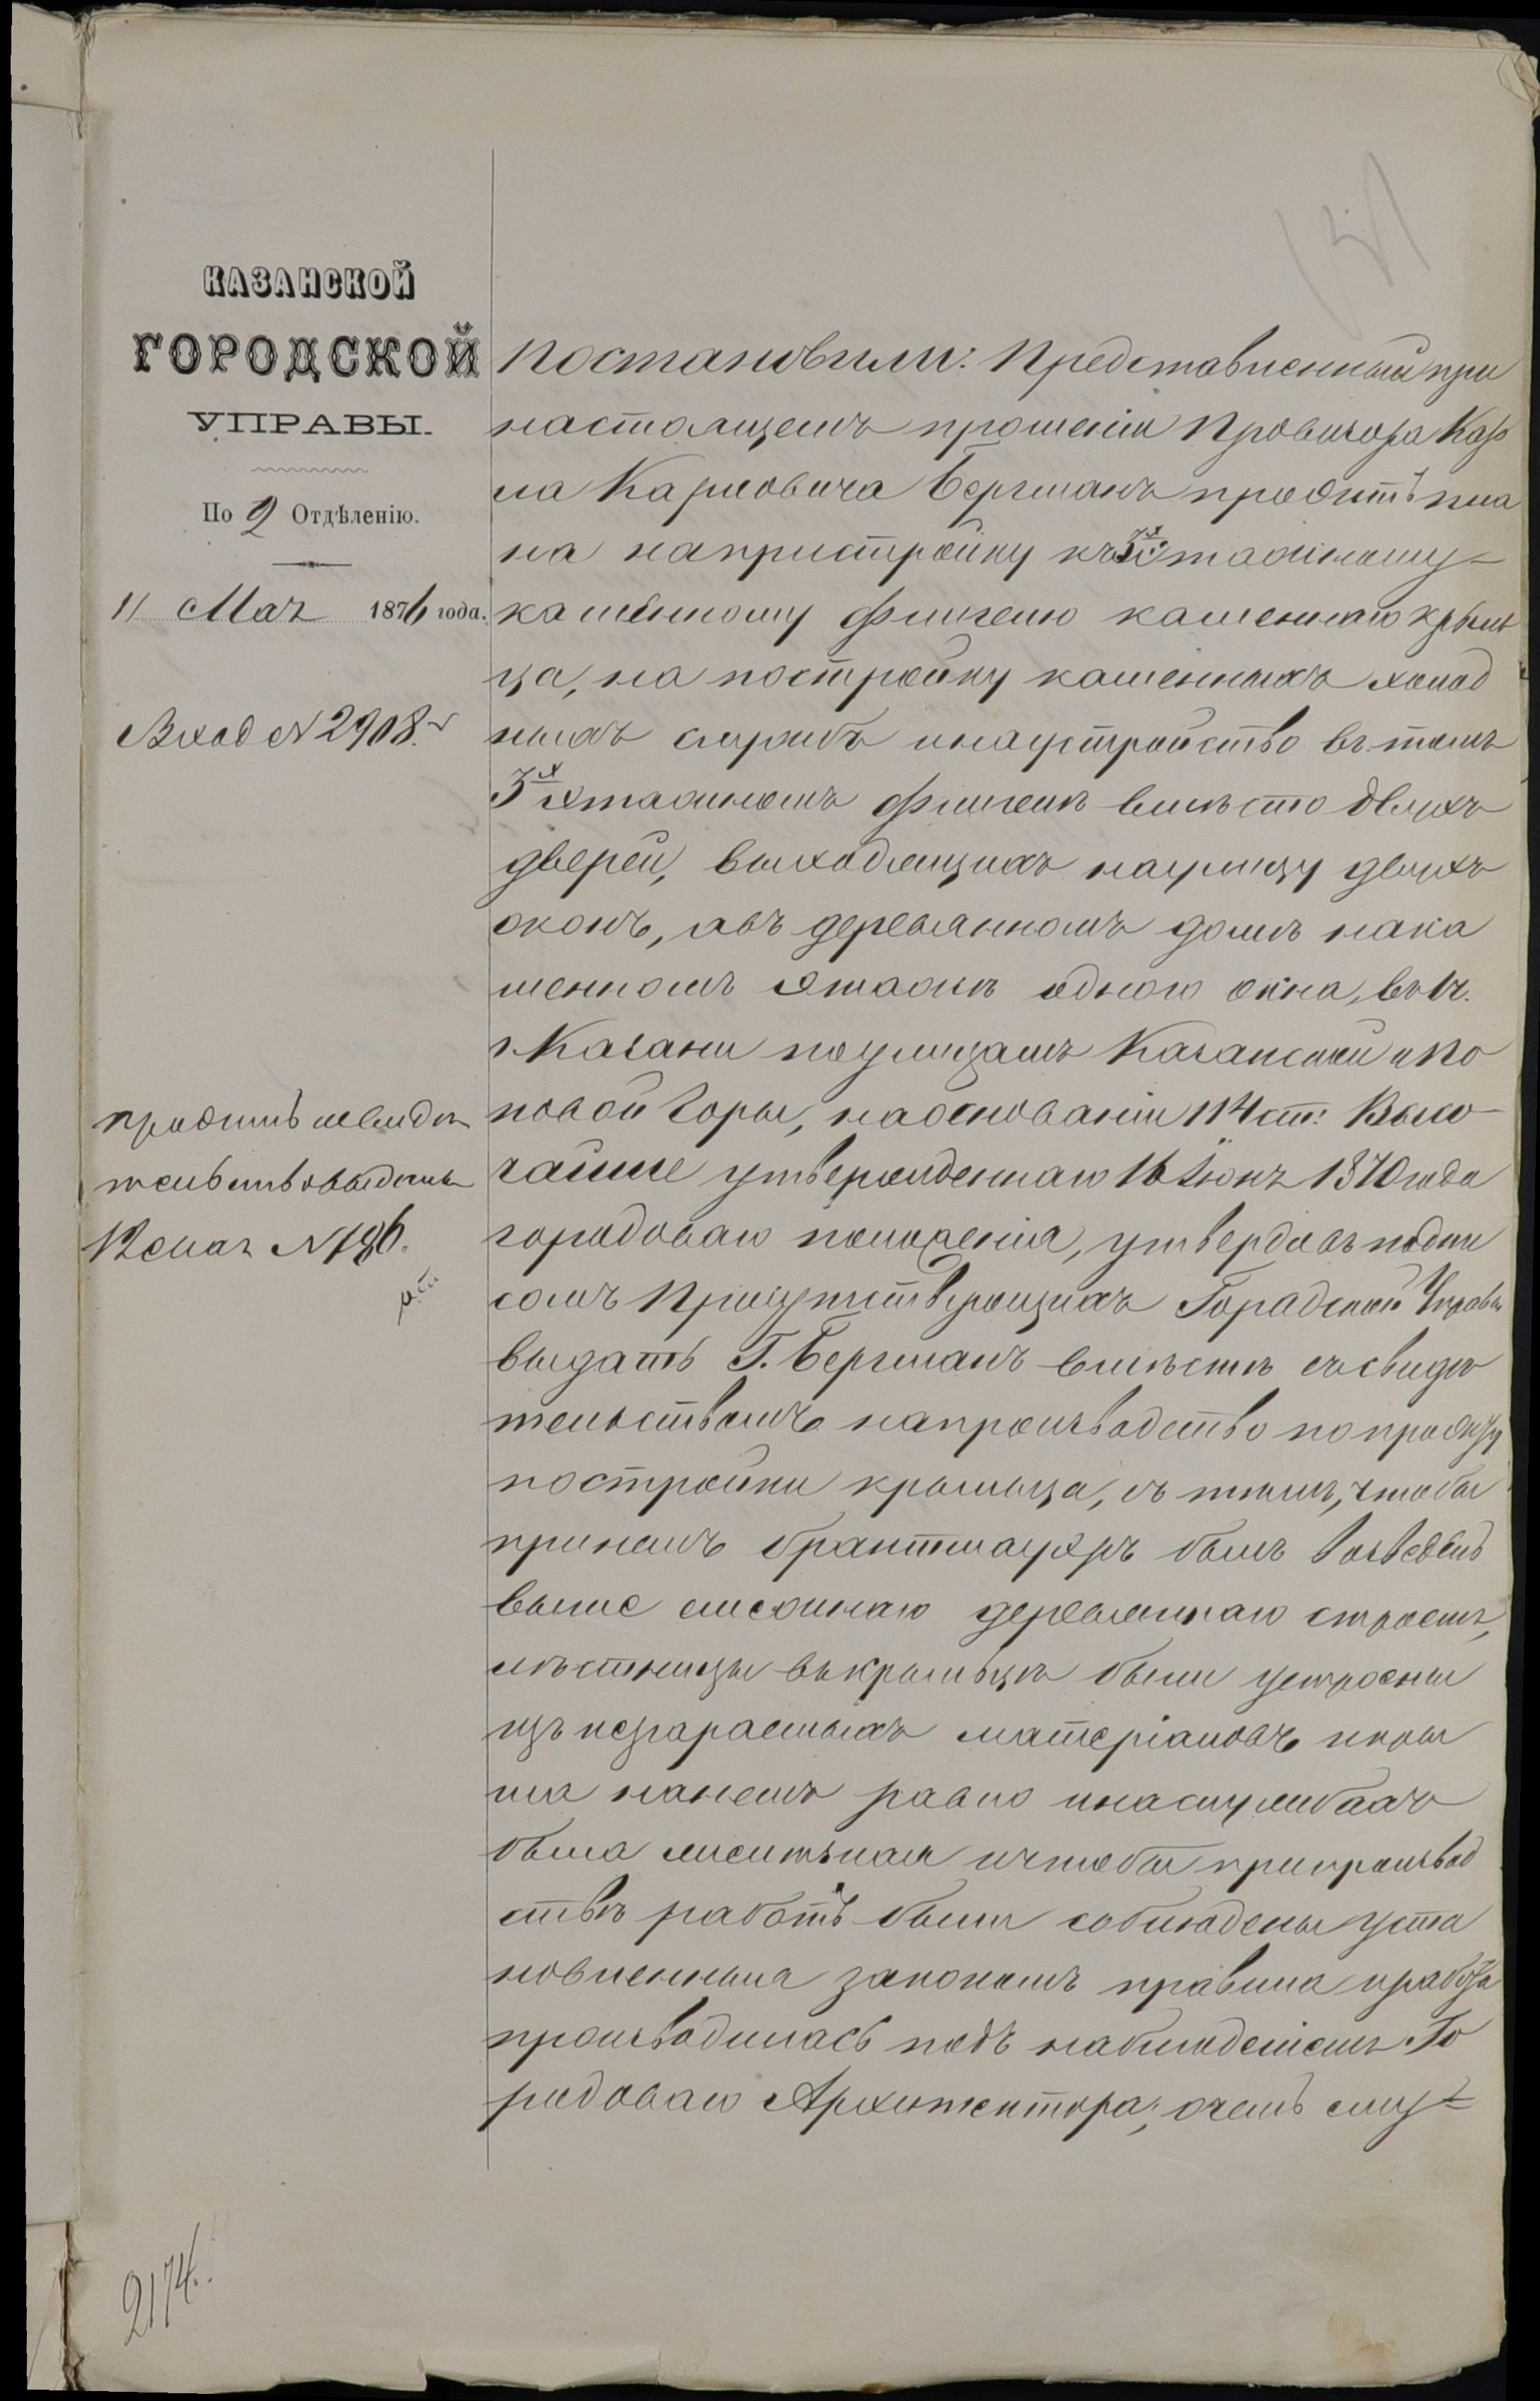 КАЗАНСКОЙ
ГОРОДСКОЙ
УПРАВЫ.
По 2 Отдѣленію.
11 Мая 1876 года.
Вход № 2908.
проэктъ и свидѣ
тельство выданы
12 мая № 186.
Постановили: Представленный при
настоящемъ прошеніи Провизора Кар
ла Карловича Бергманъ проэктъ пла
на на пристройку къ 3х этажному
каменному флигелю каменнаго крыль
ца, на постройку каменныхъ холод
ныхъ службъ и на устройство въ томъ
3х этажномъ флигелѣ вмѣсто двухъ
дверей, выходящихъ на улицу двухъ
оконъ, а въ деревянномъ домѣ на ка
менномъ этажѣ одного окна, въ 1 ч.
г. Казани по улицамъ Казанской и По
повой Горы, на основаніи 114 ст: Высо
чайше утвержденнаго 16 Іюня 1870 года
городоваго положенія, утвердивъ подпи
сомъ Присутствующихъ Городской Управы
выдать Г. Бергманъ вмѣстѣ съ свидѣ
тельствомъ на производство по проэкту
постройки крыльца, съ тѣмъ, чтобы
при немъ брантмауэръ былъ возведенъ
выше смежнаго деревяннаго строенія,
лѣстницы въ крыльцѣ были устроены
изъ несгараемыхъ матеріаловъ и кры
ша на немъ равно и на службахъ
была желѣзная и чтобы при производ
ствѣ работъ были соблюдены уста
новленныя закономъ правила и работа
производилась подъ наблюденіемъ Го
родоваго Архитектора; о чемъ ему
2174.